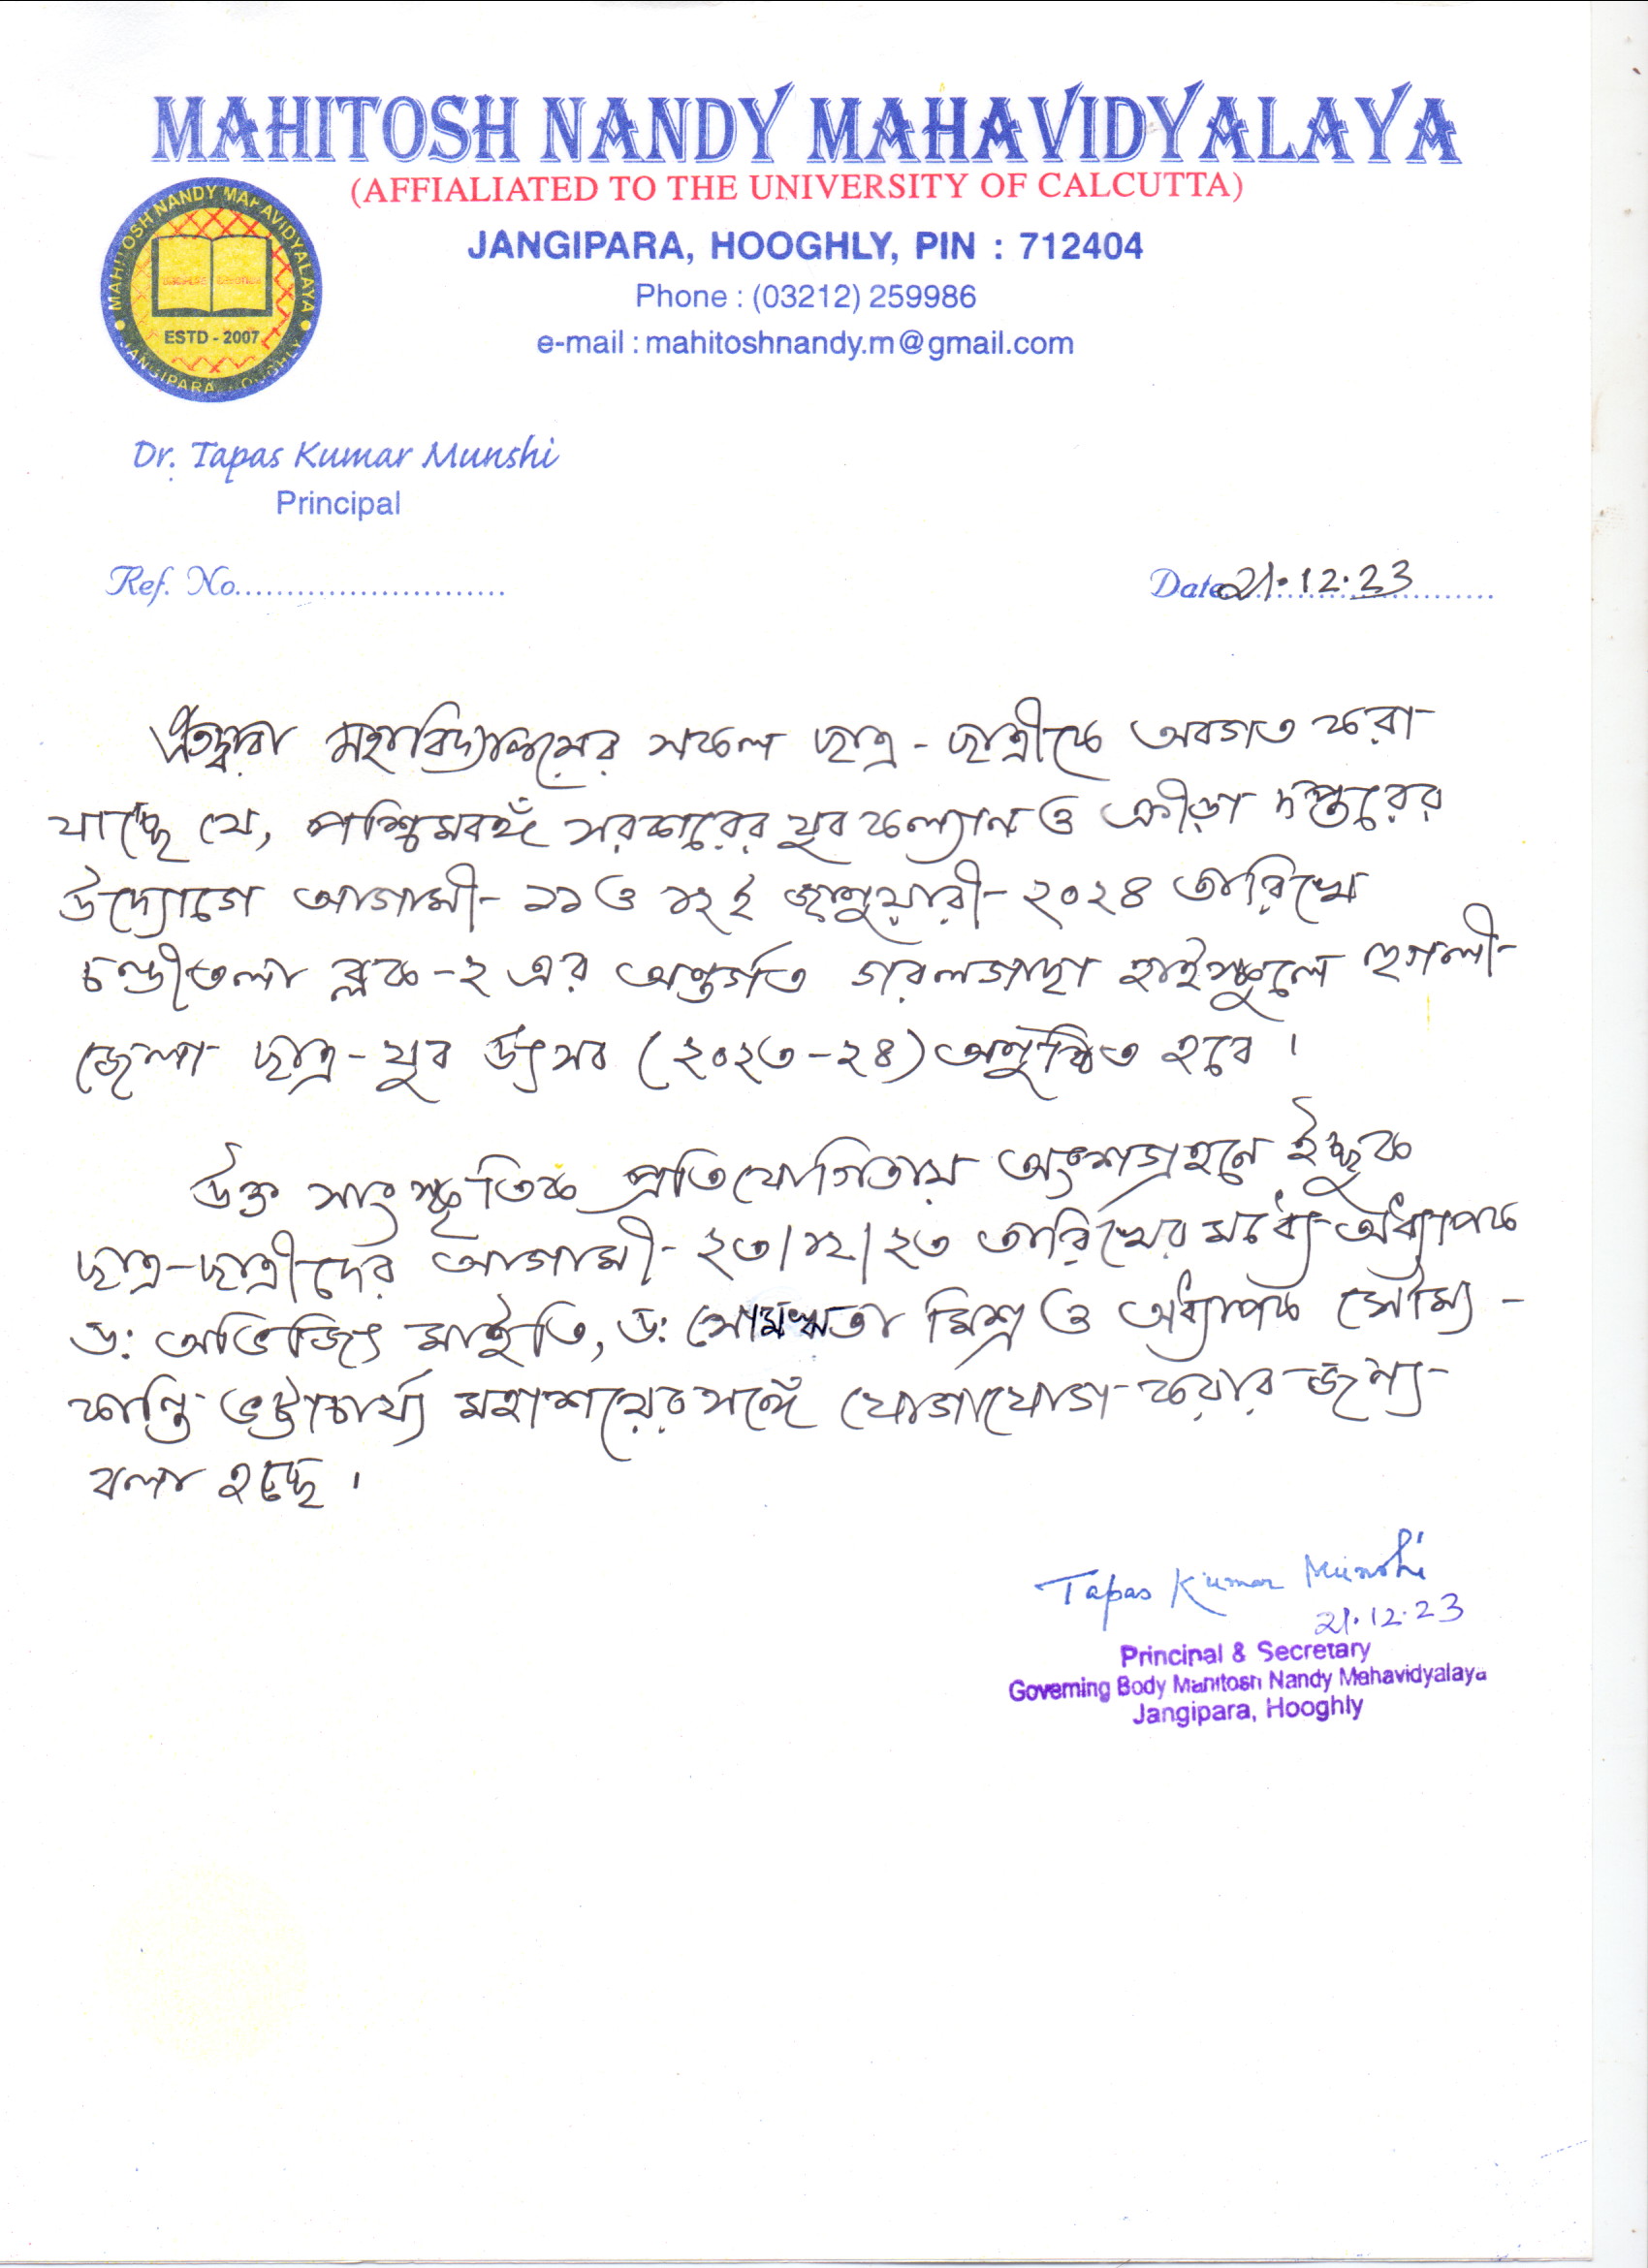 MAHITOSH NANDY MAHAVIDYALAYA
(AFFIALIATED TO THE UNIVERSITY OF CALCUTTA)
JANGIPARA, HOOGHLY, PIN : 712404
Phone : (03212) 259986
e-mail : mahitoshnandy.m@gmail.com
MAHITOSH NANDY MAHAVIDYALAYA
ESTD - 2007
JANGIPARA, HOOGHLY
Dr. Tapas Kumar Munshi
Principal
Ref. No..........................
Date 21.12.23
এতদ্বারা মহাবিদ্যালয়ের সকল ছাত্র - ছাত্রীকে অবগত করা
যাচ্ছে যে, পশ্চিমবঙ্গ সরকারের যুব কল্যান ও ক্রীড়া দপ্তরের
উদ্যোগে আগামী ১১ ও ১২ই জানুয়ারী ২০২৪ তারিখে
চন্ডীতলা ব্লক - ২ এর অন্তর্গত গরলগাছা হাইস্কুলে হুগলী
জেলা ছাত্র - যুব উৎসব (২০২৩ - ২৪) অনুষ্ঠিত হবে ।
উক্ত সাংস্কৃতিক প্রতিযোগিতায় অংশগ্রহনে ইচ্ছুক
ছাত্র - ছাত্রীদের আগামী ২৩/১২/২৩ তারিখের মধ্যে অধ্যাপক
ড: অভিজিৎ মাইতি, ড: মিশ্র ও অধ্যাপক সৌম্য -
কান্তি ভট্টাচার্য্য মহাশয়ের সঙ্গে যোগাযোগ করার জন্য
বলা হচ্ছে ।
Tapas Kumar Munshi
21.12.23
Principal & Secretary
Governing Body Mahitosh Nandy Mahavidyalaya
Jangipara, Hooghly